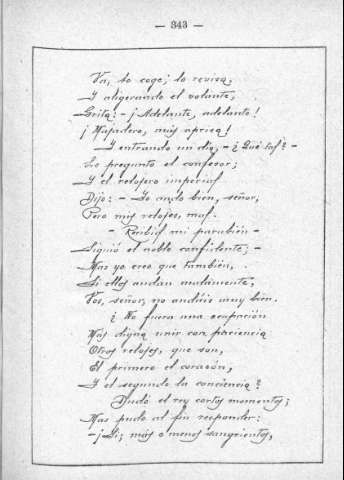 — 343 —
Va, lo coge; lo revisa,
Y aligerando el volante,
Grita: — ¡Adelante, adelante!
¡Majadero, más aprisa!
Y entrando un día, — ¿Qué tal? —
Le preguntó el confesor;
Y el relojero imperial
Dijo: — Yo ando bien, señor,
Pero mis relojes, mal.
— Recibid mi parabién —
Siguió el noble confidente; —
Mas yo creo que también,
Si ellos andan malamente,
Vos, señor, no andáis muy bien.
¿No fuera una ocupación
Más digna unir con paciencia
Otros relojes, que son,
El primero el corazón,
Y el segundo la conciencia?
Dudó el rey cortos momentos;
Mas pudo al fin responder:
— ¡Sí; más o menos sangrientos,